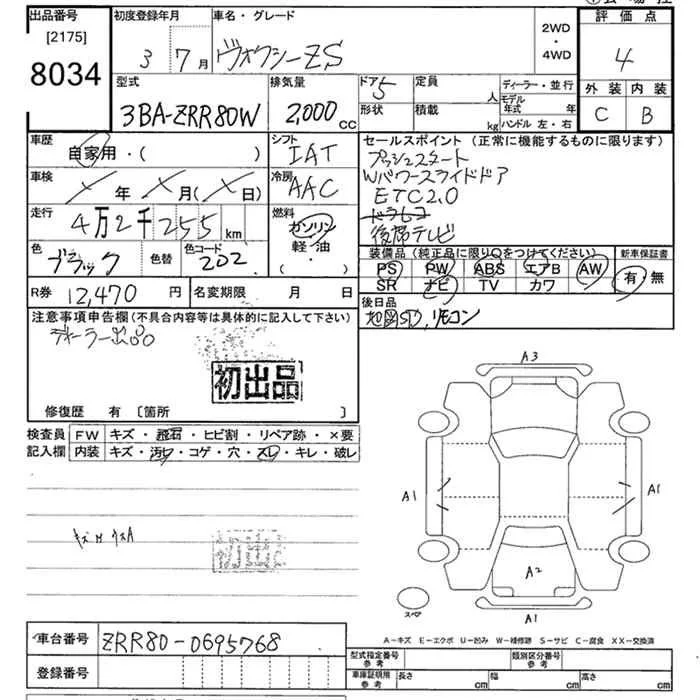 出品番号 [2175] 8034
初度登録年月 3 7月
車名・グレード ヴォクシーZS
2WD・4WD
評価点 4
外装 C 内装 B
型式 3BA-ZRR80W
排気量 2,000cc
ドア 5
形状
定員 人
積載 kg
ディーラー・並行
モデル年式 年
ハンドル 左・右
車歴 自家用・( )
シフト IAT
車検 年 月( 日)
冷房 AAC
走行 4万2千255km
燃料 ガソリン 軽・油 ・( )
色 ブラック 色替 色コード 202
R券 12,470円 名変期限 月 日
セールスポイント(正常に機能するものに限ります)
プッシュスタート
Wパワースライドドア
ETC2.0
ドラレコ
後席テレビ
装備品(純正品に限り○をつけてください) 新車保証書
PS PW ABS エアB AW 有・無
SR ナビ TV カワ
後日品
地図SD,リモコン
注意事項申告欄(不具合内容等は具体的に記入して下さい)
ディーラー出品
初出品
修復歴 有 [箇所 ]
検査員記入欄
FW キズ・飛石・ヒビ割・リペア跡・×要
内装 キズ・汚れ・コゲ・穴・スレ・キレ・破レ
初出品
A3
A1 A1
A2
A1
スペア
A-キズ E-エクボ U-凹み W-補修跡 S-サビ C-腐食 XX-交換済
車台番号 ZRR80-0695768
登録番号
型式指定番号 参考 類別区分番号 参考
車庫証明用 参考 長さ cm 幅 cm 高さ cm